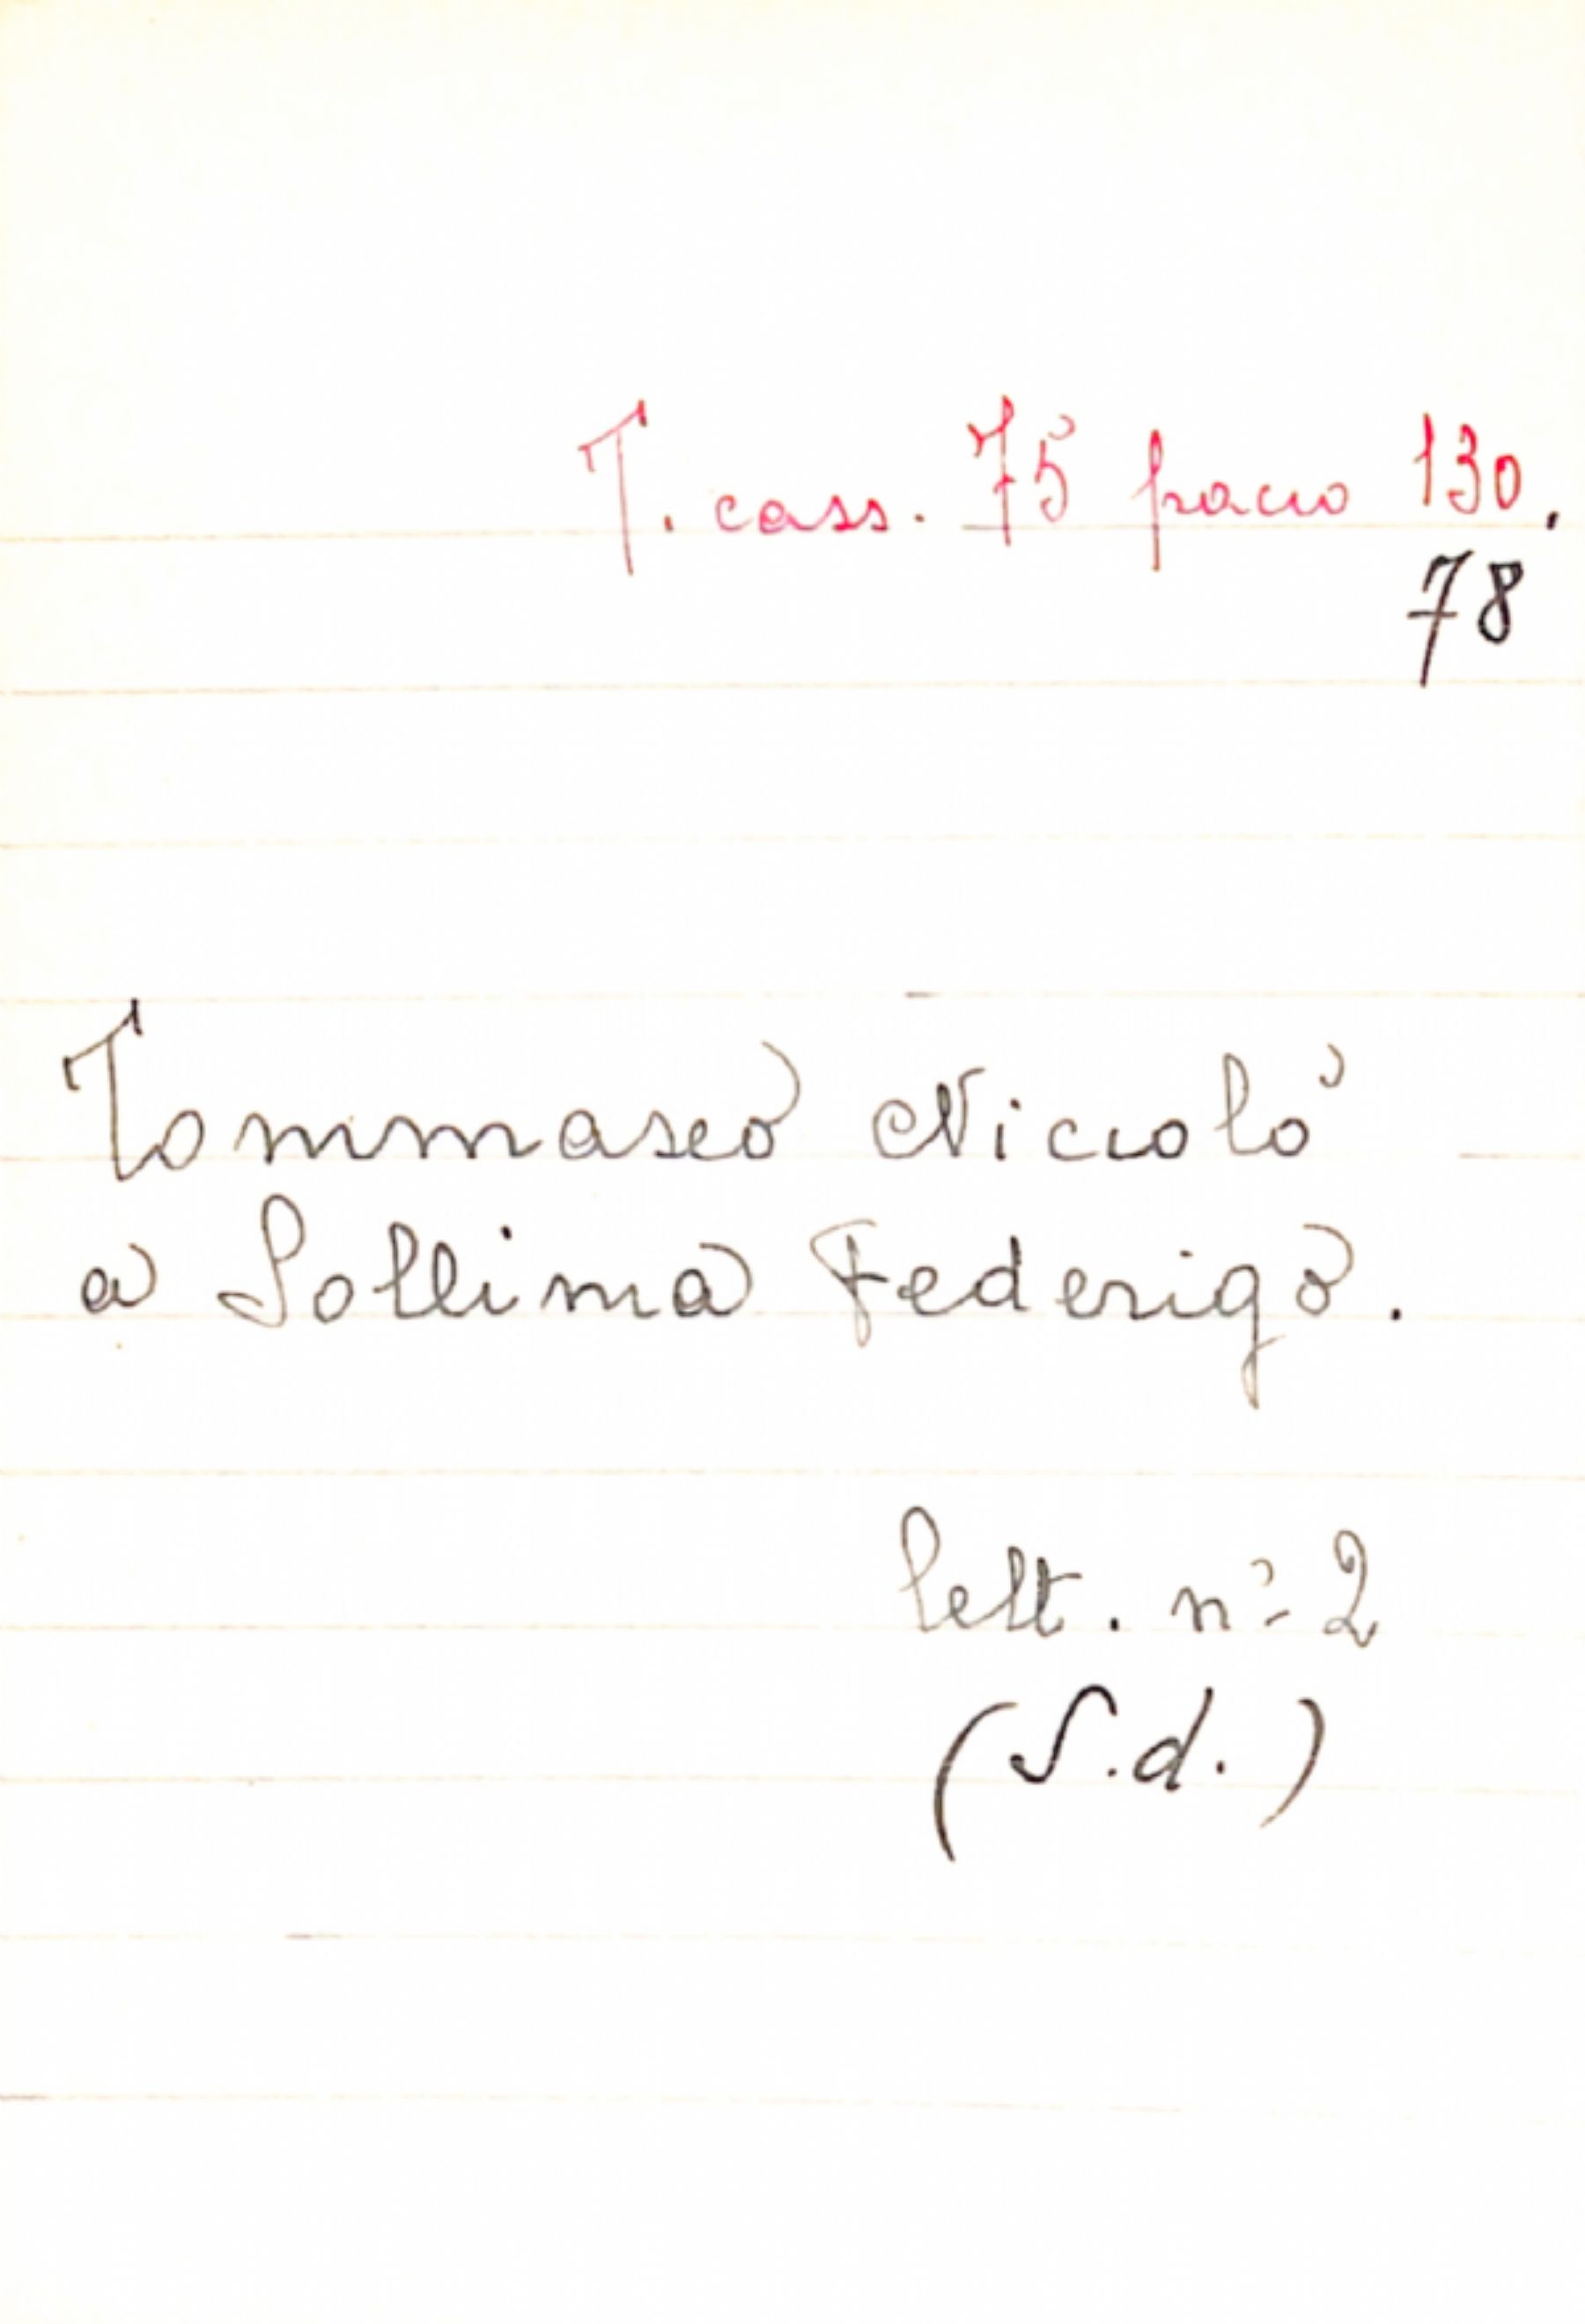 T. cass. 75 pacco 130.
78
Tommaseo Niccolò
a Sollima Federigo.
lett. n° 2
(S.d.)